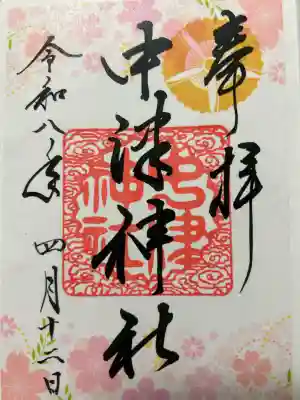 奉拝
中津神社
中津神社
令和八年 四月廿六日